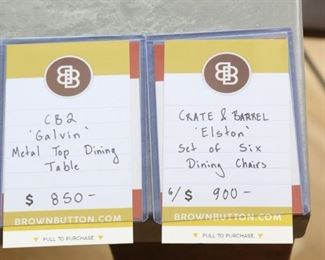 BB
CB2
'Galvin'
Metal Top Dining
Table
$ 850-
BROWNBUTTON.COM
PULL TO PURCHASE
BB
CRATE & BARREL
'Elston'
Set of Six
Dining Chairs
6/ $ 900-
BROWNBUTTON.COM
PULL TO PURCHASE